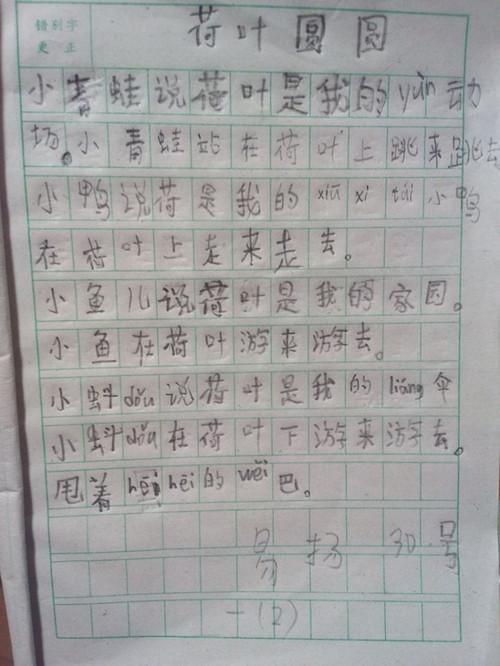 错别字
更正
荷叶圆圆
小青蛙说荷叶是我的yùn动
场。小青蛙站在荷叶上跳来跳去
小鸭说荷是我的xiū xi tái小鸭
在荷叶上走来走去。
小鱼儿说荷叶是我的家园。
小鱼在荷叶游来游去。
小蚪dǒu说荷叶是我的liáng伞
小蚪dǒu在荷叶下游来游去。
甩着hēi hēi的wěi巴。
易扬 30号
一(2)